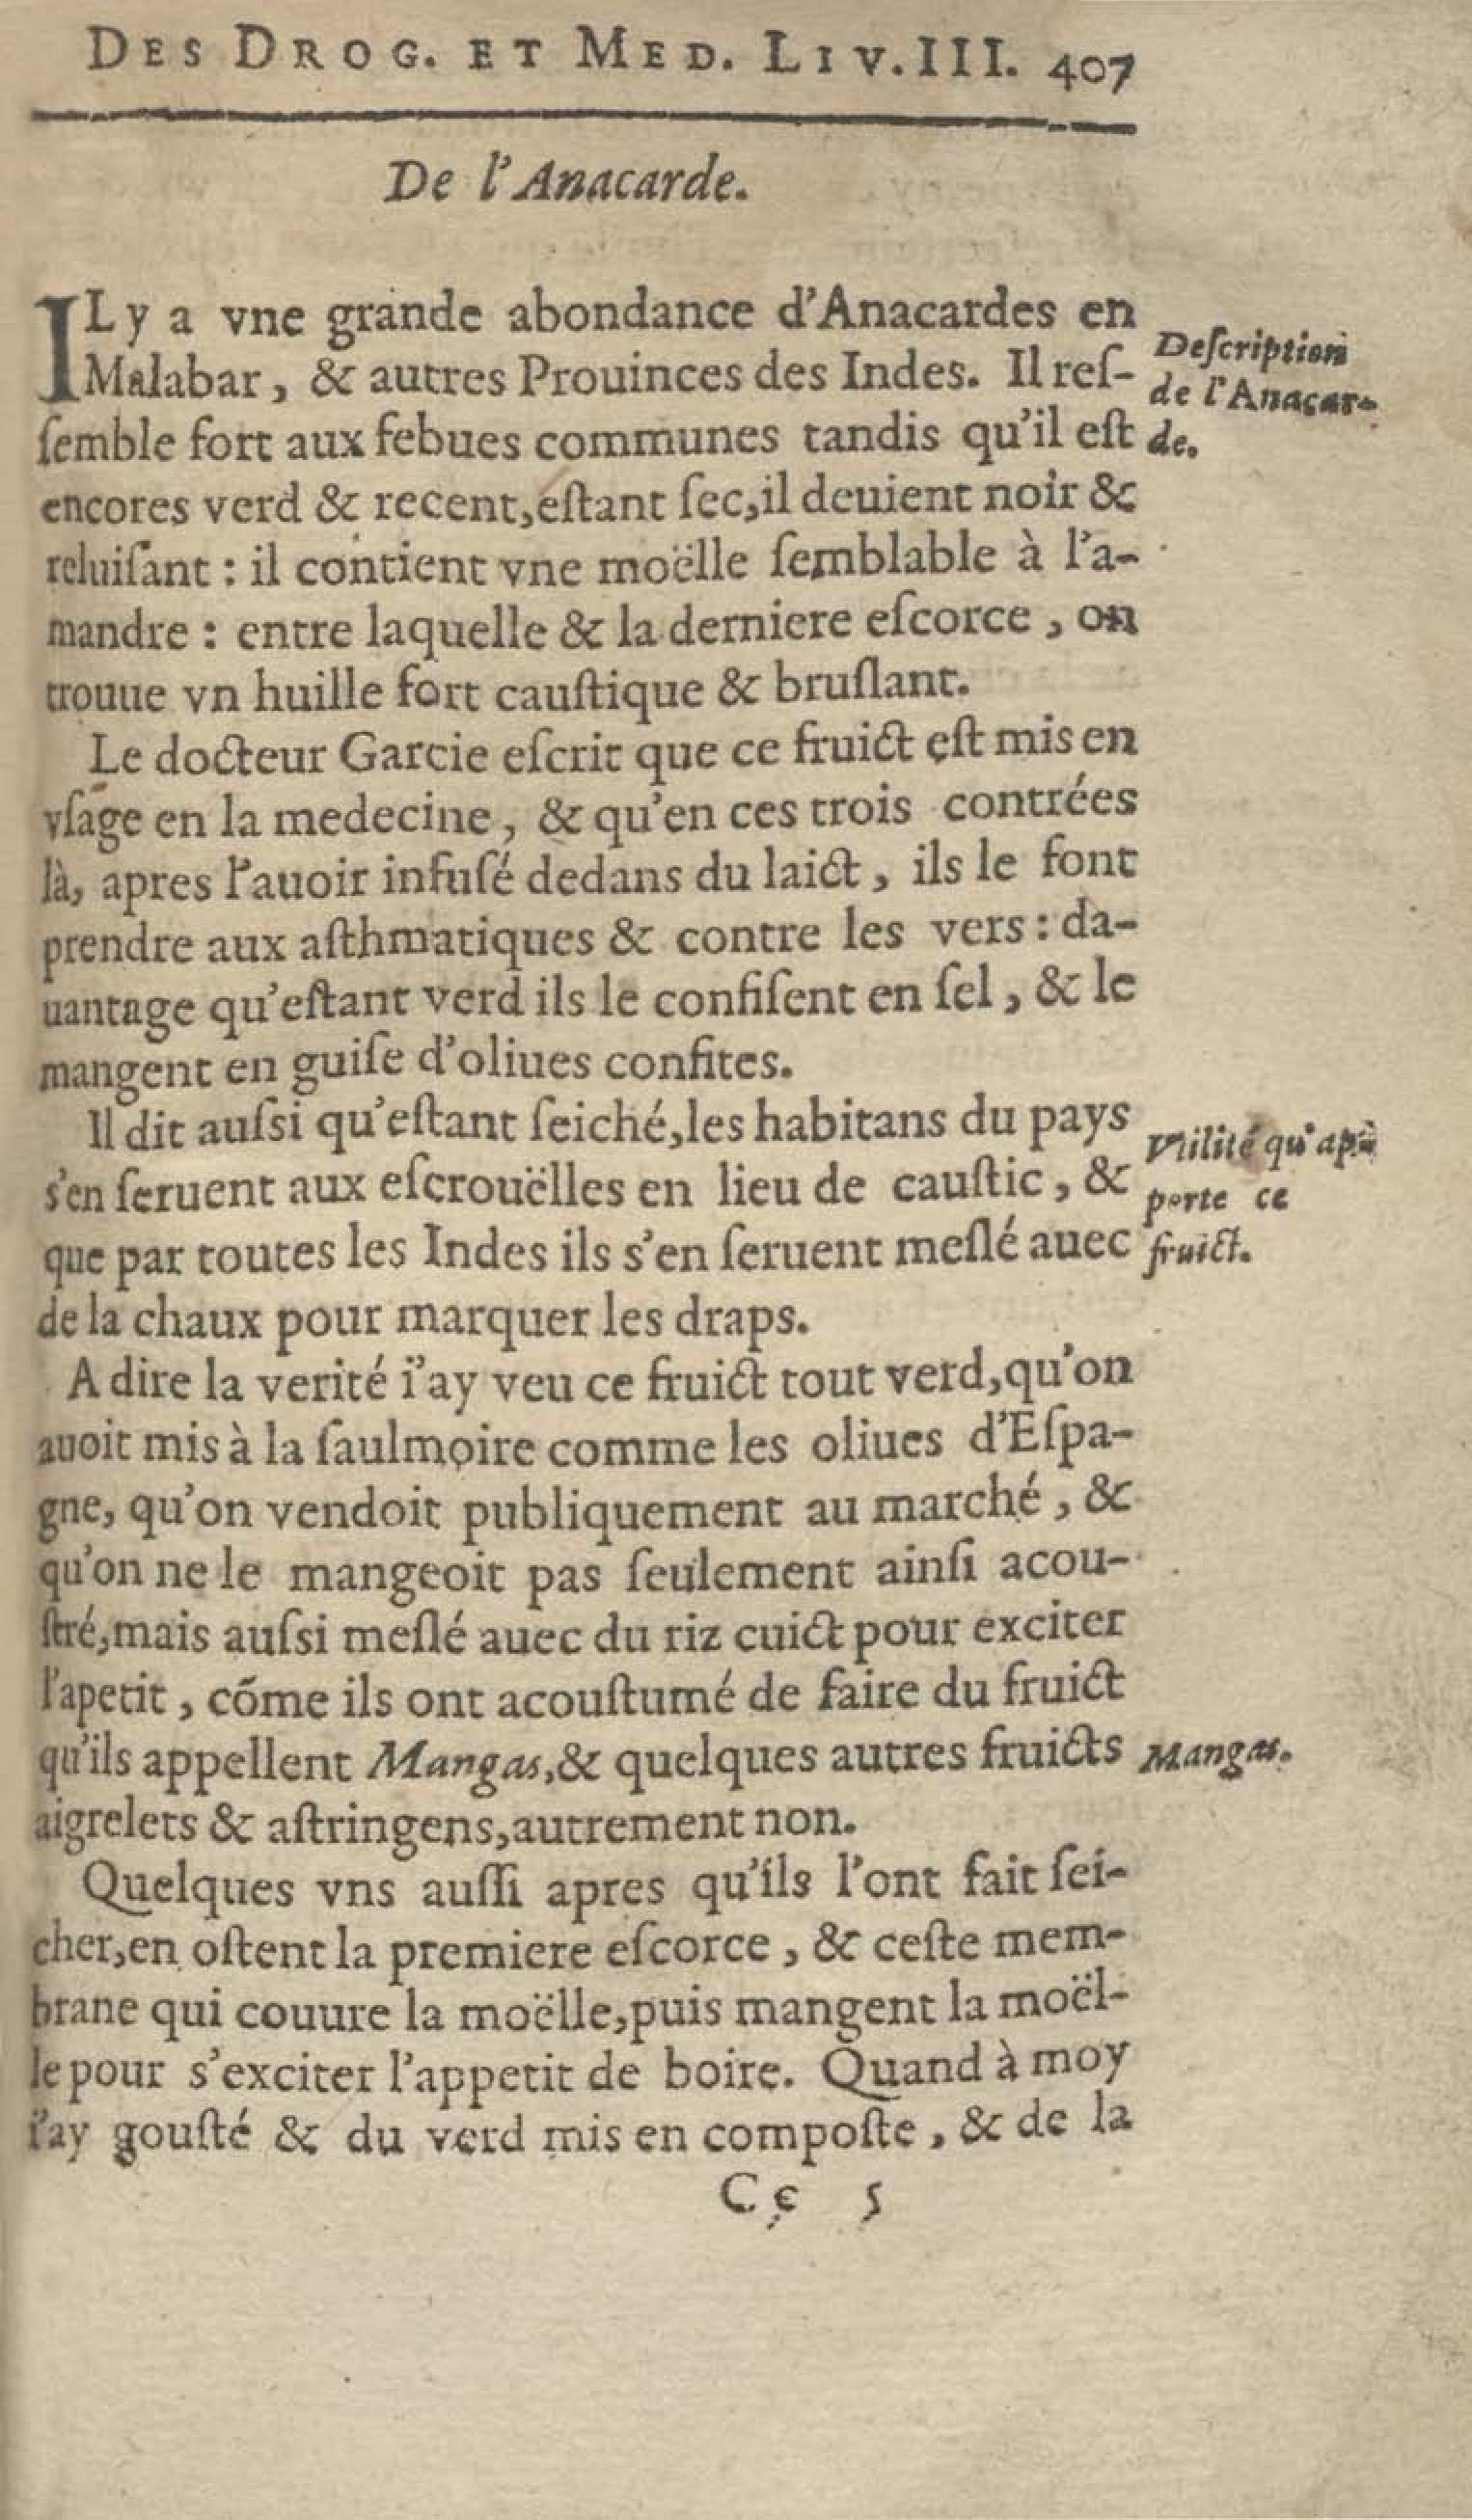 DES DROG. ET MED. LIV. III. 407
De l'Anacarde.
IL y a vne grande abondance d'Anacardes en
Malabar, & autres Prouinces des Indes. Il reſ-
ſemble fort aux febues communes tandis qu'il eſt
encores verd & recent, eſtant ſec, il deuient noir &
reluiſant : il contient vne moëlle ſemblable à l'a-
mandre : entre laquelle & la derniere eſcorce, on
trouue vn huille fort cauſtique & bruſlant.
Deſcription
de l'Anacar-
de.
Le docteur Garcie eſcrit que ce fruict eſt mis en
vſage en la medecine, & qu'en ces trois contrées
là, apres l'auoir infuſé dedans du laict, ils le font
prendre aux aſthmatiques & contre les vers : da-
uantage qu'eſtant verd ils le confiſent en ſel, & le
mangent en guiſe d'oliues confites.
Il dit auſsi qu'eſtant ſeiché, les habitans du pays
s'en ſeruent aux eſcrouëlles en lieu de cauſtic, &
que par toutes les Indes ils s'en ſeruent meſlé auec
de la chaux pour marquer les draps.
Vtilité qu'ap-
porte ce
fruict.
A dire la verité i'ay veu ce fruict tout verd, qu'on
auoit mis à la ſaulmoire comme les oliues d'Eſpa-
gne, qu'on vendoit publiquement au marché, &
qu'on ne le mangeoit pas ſeulement ainſi acou-
ſtré, mais auſsi meſlé auec du riz cuict pour exciter
l'apetit, cõme ils ont acouſtumé de faire du fruict
qu'ils appellent Mangas, & quelques autres fruicts
aigrelets & aſtringens, autrement non.
Mangas.
Quelques vns auſſi apres qu'ils l'ont fait ſei-
cher, en oſtent la premiere eſcorce, & ceſte mem-
brane qui couure la moëlle, puis mangent la moël-
le pour s'exciter l'appetit de boire. Quand à moy
i'ay gouſté & du verd mis en compoſte, & de la
Cc 5